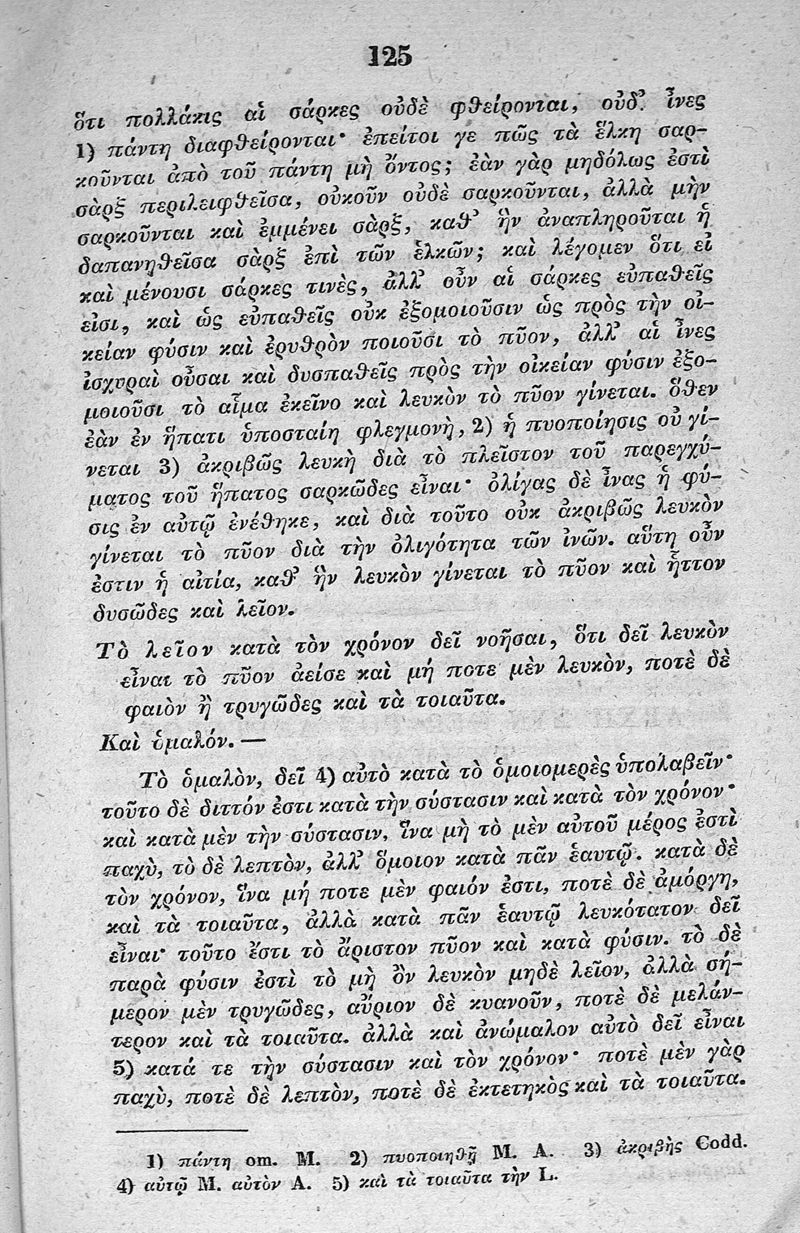 125
ὅτι πολλάκις αἱ σάρκες οὐδὲ φθείρονται, οὐδ᾽ ἶνες
1) πάντη διαφθείρονται· ἐπείτοι γε πῶς τὰ ἕλκη σαρ-
κοῦνται ἀπὸ τοῦ πάντη μὴ ὄντος; ἐὰν γὰρ μηδόλως ἐστὶ
σὰρξ περιλειφθεῖσα, οὐκοῦν οὐδὲ σαρκοῦνται, ἀλλὰ μὴν
σαρκοῦνται καὶ ἐμμένει σὰρξ, καθ᾽ ἣν ἀναπληροῦται ἡ
δαπανηθεῖσα σὰρξ ἐπὶ τῶν ἑλκῶν; καὶ λέγομεν ὅτι εἰ
καὶ μένουσι σάρκες τινὲς, ἀλλ᾽ οὖν αἱ σάρκες εὐπαθεῖς
εἰσι, καὶ ὡς εὐπαθεῖς οὐκ ἐξομοιοῦσιν ὡς πρὸς τὴν οἰ-
κείαν φύσιν καὶ ἐρυθρὸν ποιοῦσι τὸ πῦον, ἀλλ᾽ αἱ ἶνες
ἰσχυραὶ οὖσαι καὶ δυσπαθεῖς πρὸς τὴν οἰκείαν φύσιν ἐξο-
μοιοῦσι τὸ αἷμα ἐκεῖνο καὶ λευκὸν τὸ πῦον γίνεται. ὅθεν
ἐὰν ἐν ἥπατι ὑποσταίη φλεγμονὴ, 2) ἡ πυοποίησις οὐ γί-
νεται 3) ἀκριβῶς λευκὴ διὰ τὸ πλεῖστον τοῦ παρεγχύ-
ματος τοῦ ἥπατος σαρκῶδες εἶναι· ὀλίγας δὲ ἶνας ἡ φύ-
σις ἐν αὐτῷ ἐνέθηκε, καὶ διὰ τοῦτο οὐκ ἀκριβῶς λευκὸν
γίνεται τὸ πῦον διὰ τὴν ὀλιγότητα τῶν ἰνῶν. αὕτη οὖν
ἐστιν ἡ αἰτία, καθ᾽ ἣν λευκὸν γίνεται τὸ πῦον καὶ ἧττον
δυσῶδες καὶ λεῖον.
Τὸ λεῖον κατὰ τὸν χρόνον δεῖ νοῆσαι, ὅτι δεῖ λευκὸν
εἶναι τὸ πῦον ἀείσε καὶ μή ποτε μὲν λευκὸν, ποτὲ δὲ
φαιὸν ἢ τρυγῶδες καὶ τὰ τοιαῦτα.
Καὶ ὁμαλόν. —
Τὸ ὁμαλὸν, δεῖ 4) αὐτὸ κατὰ τὸ ὁμοιομερὲς ὑπολαβεῖν·
τοῦτο δὲ διττόν ἐστι κατὰ τὴν σύστασιν καὶ κατὰ τὸν χρόνον·
καὶ κατὰ μὲν τὴν σύστασιν, ἵνα μὴ τὸ μὲν αὐτοῦ μέρος ἐστὶ
παχὺ, τὸ δὲ λεπτὸν, ἀλλ᾽ ὅμοιον κατὰ πᾶν ἑαυτῷ. κατὰ δὲ
τὸν χρόνον, ἵνα μή ποτε μὲν φαιόν ἐστι, ποτὲ δὲ ἀμόργη,
καὶ τὰ τοιαῦτα, ἀλλὰ κατὰ πᾶν ἑαυτῷ λευκότατον δεῖ
εἶναι· τοῦτο ἔστι τὸ ἄριστον πῦον καὶ κατὰ φύσιν. τὸ δὲ
παρὰ φύσιν ἐστὶ τὸ μὴ ὂν λευκὸν μηδὲ λεῖον, ἀλλὰ σή-
μερον μὲν τρυγῶδες, αὔριον δὲ κυανοῦν, ποτὲ δὲ μελάν-
τερον καὶ τὰ τοιαῦτα. ἀλλὰ καὶ ἀνώμαλον αὐτὸ δεῖ εἶναι
5) κατά τε τὴν σύστασιν καὶ τὸν χρόνον· ποτὲ μὲν γὰρ
παχὺ, ποτὲ δὲ λεπτὸν, ποτὲ δὲ ἐκτετηκὸς καὶ τὰ τοιαῦτα.
1) πάντη om. M. 2) πυοποιηθῇ M. A. 3) ἀκριβὴς Codd.
4) αὐτῷ M. αὐτὸν A. 5) καὶ τὰ τοιαῦτα τὴν L.